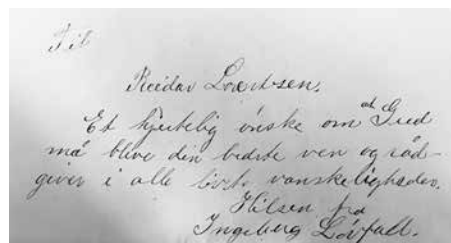 Til
Reidar Lorentsen.
Et hjertelig ønske om at Gud
må blive din bedste ven og råd-
giver i alle livets vanskeligheder.
Hilsen fra
Ingeborg Løvfall.